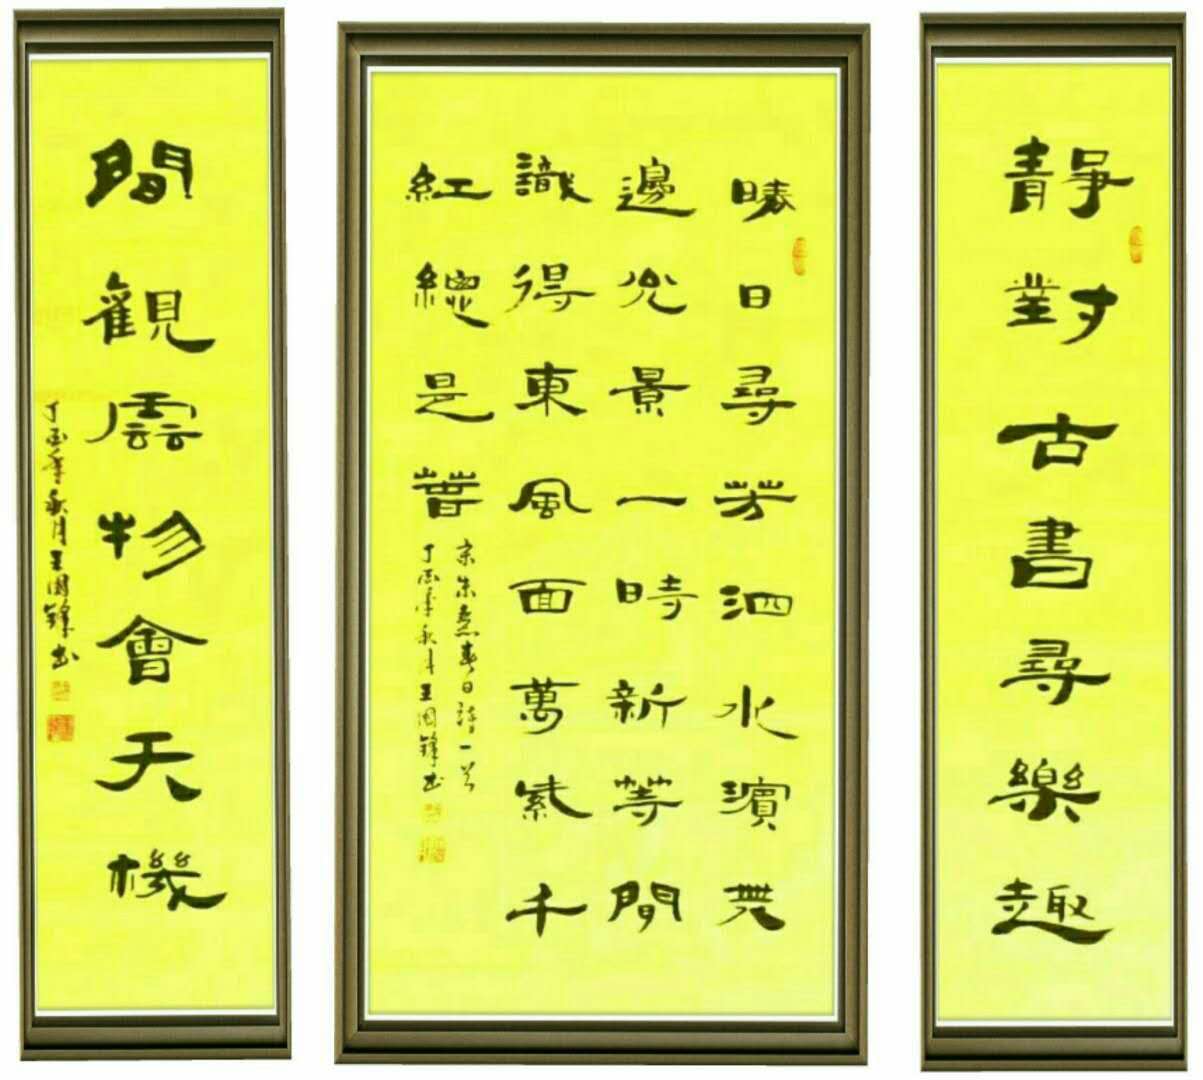 靜對古書尋樂趣
勝日尋芳泗水濱無
邊光景一時新等間
識得東風面萬紫千
紅總是春
宋朱熹春日詩一首
丁酉年秋月王國鋒书
間觀雲物會天機
丁酉年秋月王國鋒书